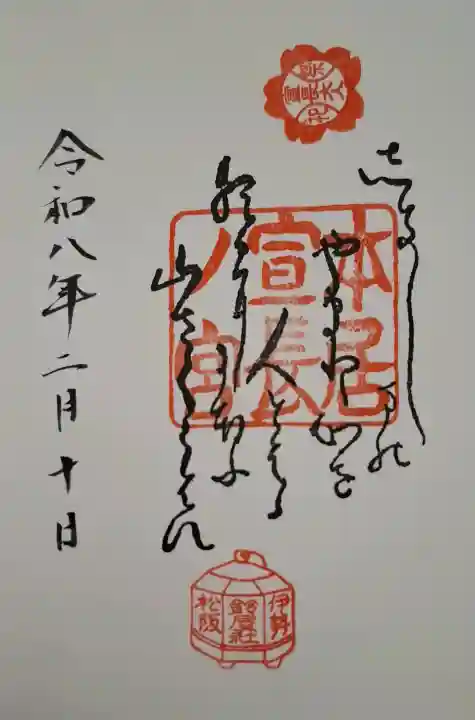 しきしまの
やまと心を
人とはゝ
朝日ににほふ
山さくらはな
本居
宣長
ノ宮
令和八年二月十日
伊勢
鈴屋社
松阪